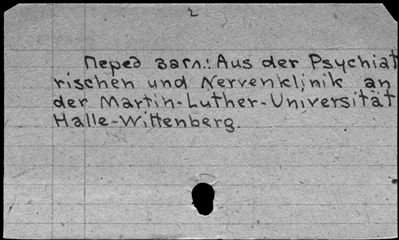 2
Перед загл.: Aus der Psychiat
rischen und Nervenklinik an
der Martin-Luther-Universität
Halle-Wittenberg.